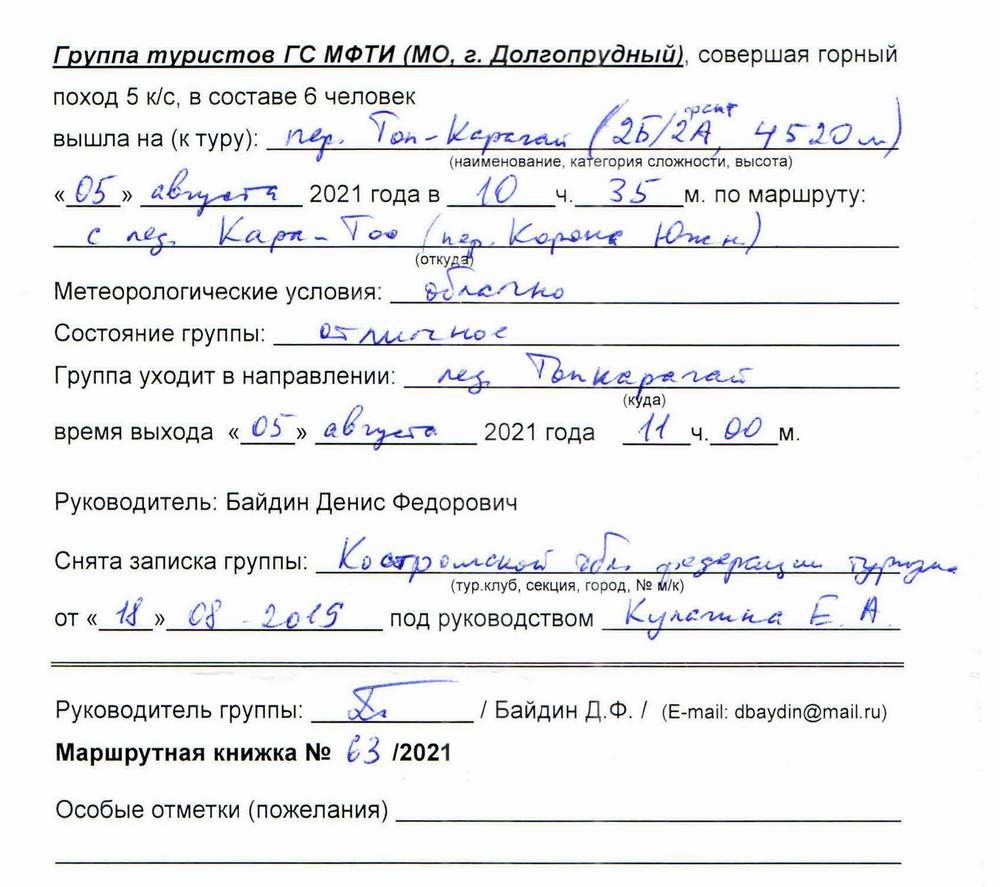 Группа туристов ГС МФТИ (МО, г. Долгопрудный), совершая горный
поход 5 к/с, в составе 6 человек
вышла на (к туру): пер. Топ-Карагай (2Б/2А, 4520 м)
(наименование, категория сложности, высота)
«05» августа 2021 года в 10 ч. 35 м. по маршруту:
с лед. Кара-Тоо (пер. Корона Южн)
(откуда)
Метеорологические условия: облачно
Состояние группы: отличное
Группа уходит в направлении: лед. Топкарагай
(куда)
время выхода «05» августа 2021 года 11 ч. 00 м.
Руководитель: Байдин Денис Федорович
Снята записка группы: Костромской обл. федерации туризма
(тур.клуб, секция, город, № м/к)
от «18» 08 - 2019 под руководством Кулагина Е. А.
Руководитель группы: / Байдин Д.Ф. / (E-mail: dbaydin@mail.ru)
Маршрутная книжка № 63 /2021
Особые отметки (пожелания)